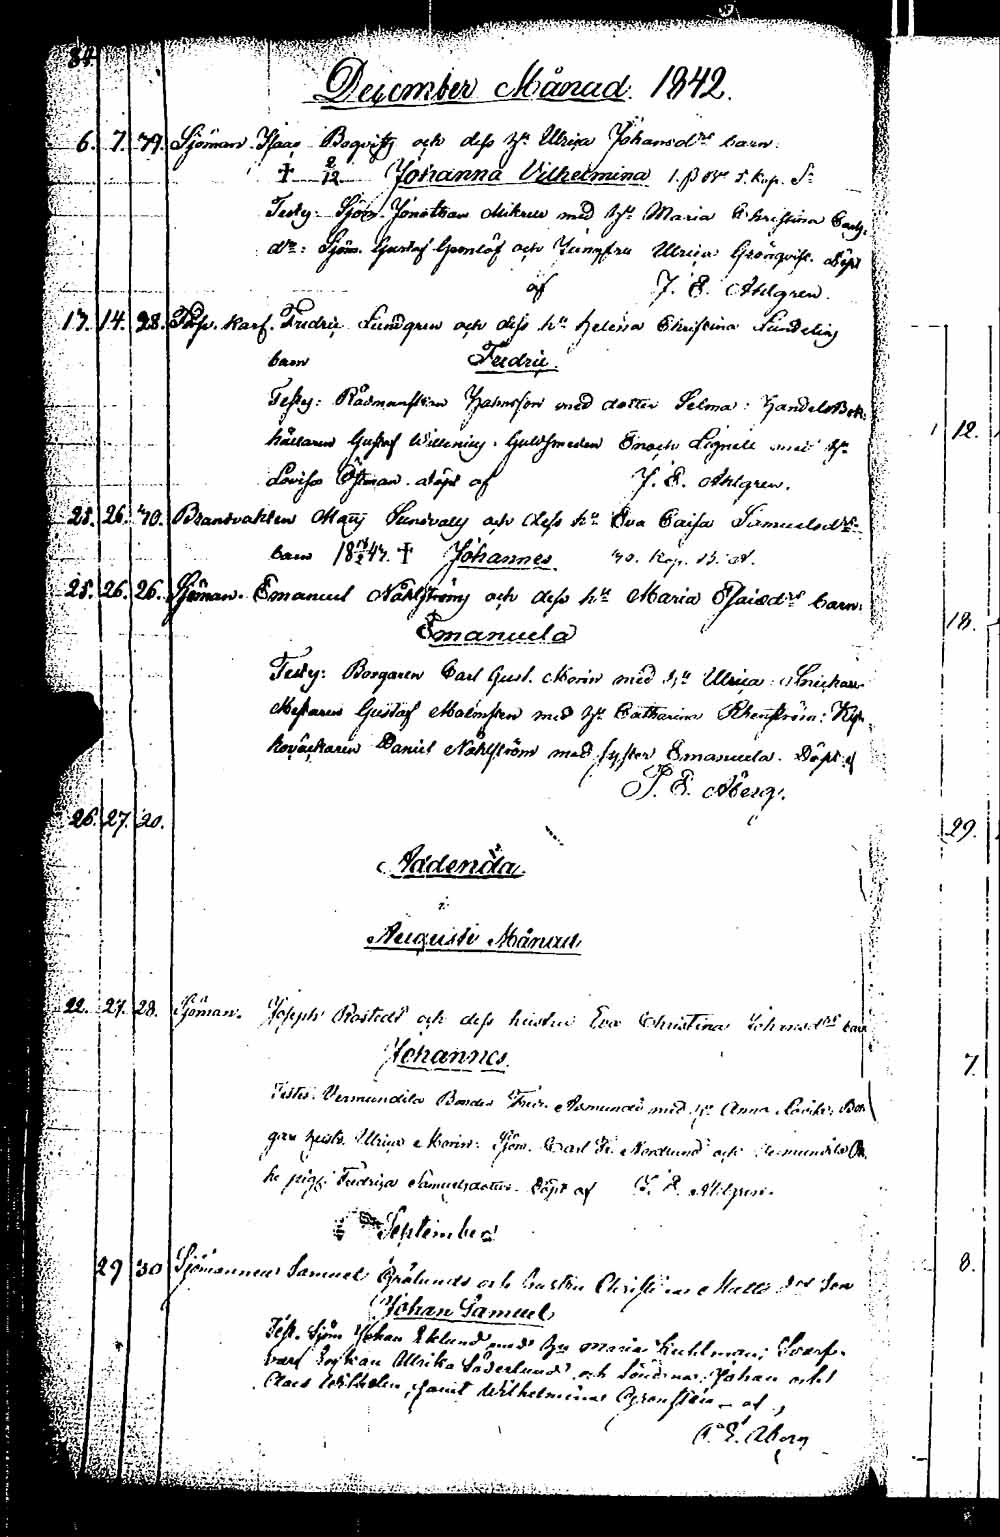 84
December Månad. 1842.
6. 7. 79. Sjöman Isaac Bogvitz och dess H:u Ulrica Johansd:r barn.
† 2/12 Johanna Vilhelmina
Test: Sjöm. Jonathan med H:u Maria Christina
d:r: Sjöm. Gustaf Grönlöf och Jungfru Ulrica Grönqvist. Döpt
af J. E. Ahlgren.
13. 14. 28. Karf. Fredric Lundgren och dess h:u Helena Christina Lundelin
barn Fredric.
Test: med doter Selma: Handels Bok
hållaren Gustaf Willenius. Guldsmeden Enoch Lignell med H:u
Lovisa Östman. döpt af J. E. Ahlgren.
25. 26. 40. Brandvakten Matts Sundvall och dess h:u Eva Caisa Samuelsd:r
barn 18 43. † Johannes.
25. 26. 26. Sjöman. Emanuel Nåhlström och dess h:u Maria Esaiasd:r barn.
Emanuela
Test: Borgaren Carl Gust. Morin med H:u Ulrica. Snickare
Mästaren Gustaf Malmsten med H:u Catharina Rhenström:
Daniel Nåhlström med syster Emanuela. Döpt af
P. E. Åberg.
26. 27. 20.
Addenda
i
Augusti Månad
22. 27. 28. Sjöman. Joseph Rostedt och dess hustru Eva Christina Johansd:r barn
Johannes.
Testes. Vermundila Bonden Fredr. Asmundi med H:u Anna Bor
gare Ulrica Morin: Sjöm. Carl Fr. Nordlund och Vermundila
pig. Fredrica Samuelsdotter. Döpt af J. E. Ahlgren.
September
29 30 Sjömannen Samuel Grålunds och hustru Christina Matts d:r Son
Johan Samuel
Test. Sjöm Johan Eklund med H:u Maria Kuhlman; Svarf-
Enkan Ullrika Söderlund och Sönerna Johan och
Claes Wilhelm, samt Wilhelmina Grönsten - af
P. E. Åberg
12.
18.
29.
7.
8.